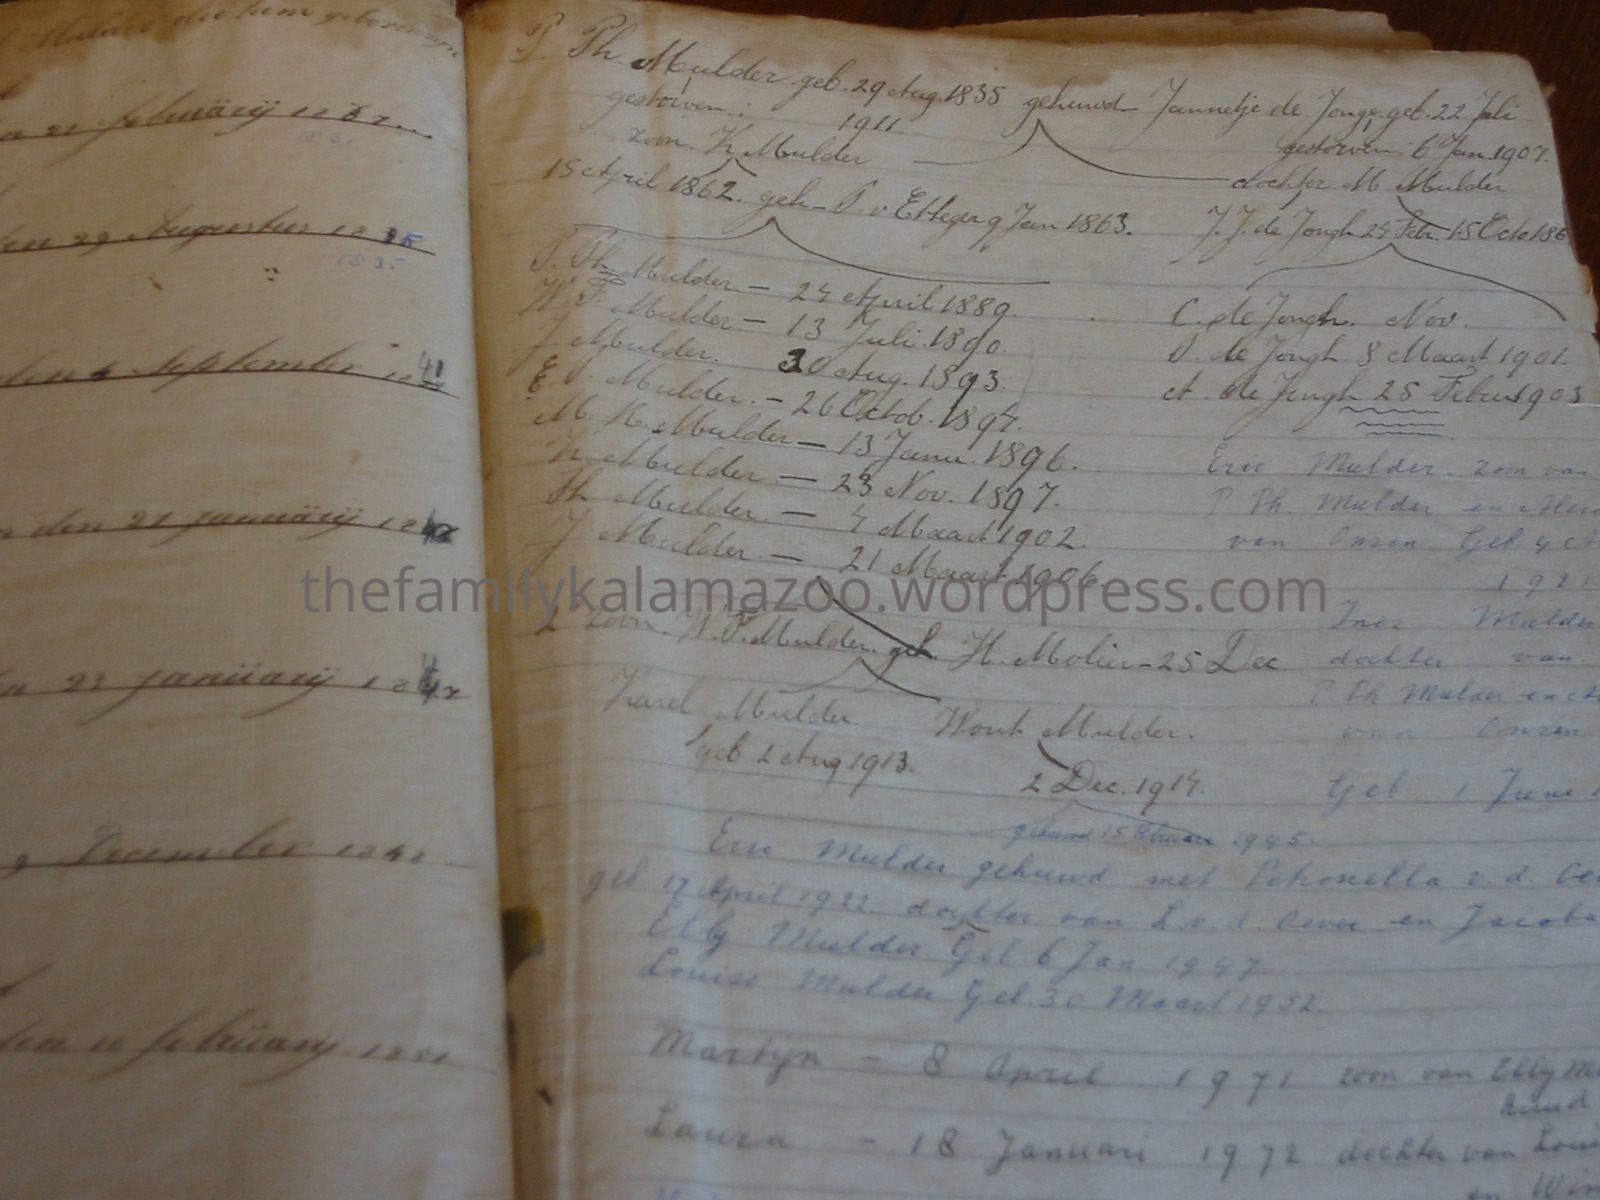 Mulder die hem geboren zyn
21 februarij
1831
den 29 Augustus 1835
1835
den September 41
den 21 Januarij
23 Januarij
December
den februarij
P. Ph. Mulder geb. 29 Aug. 1835 gehuwd Jannetje de Jonge geb. 22 Juli
gestorven: 1911. gestorven: 6 Jan 1907.
zoon. K Mulder dochter. M. Mulder
15 April 1862. geh - P. v Etteger 9 Jan 1863. J. J. de Jongh 24 Febr. 15 Octo 186
P. Ph. Mulder - 24 April 1889.
W. P. Mulder - 13 Juli 1890.
J. Mulder. 30 Aug. 1893.
E. P. Mulder. - 26 Octob. 1894.
M. K. Mulder - 13 Janu. 1896.
K. Mulder - 23 Nov. 1897.
Ph Mulder. - 4 Maart 1902.
J Mulder. - 21 Maart 1906
C. de Jongh. Nov.
P. de Jongh 8 Maart 1901.
A. de Jongh 25 Febru 1903
Eric Mulder. zoon van
P Ph. Mulder en
van Onzen Geb 4 A
1921
Inez Mulder
dochter van.
P Ph Mulder en
van Onzen.
Geb 1 Juni 1
thefamilykalamazoo.wordpress.com
zoon. W. P. Mulder. geh. H. Molier - 25 Dec.
Karel Mulder. Wout Mulder.
geb 2 Aug 1913. 2 Dec. 1914.
gehuwd 15 Februari 1945.
Eric Mulder gehuwd met Petronella v. d.
geb. 17 April 1922 dochter van L. v. d. Oever en Jacoba
Elly Mulder Geb 6 Jan 1947
Louise Mulder Geb. 30 Maart 1952.
Martijn - 8 April 1971 zoon van Elly Mu
Ruud
Laura - 18 Januari 1972 dochter van Loui
en Wim